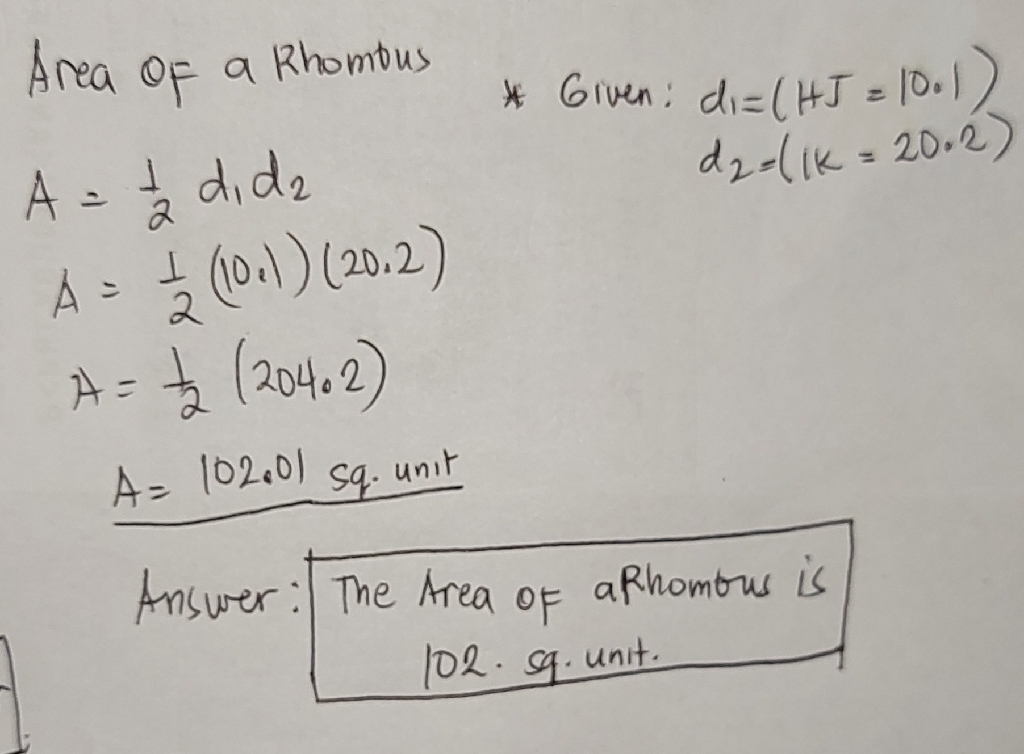 Area of a Rhombus
* Given: d₁=(HJ = 10.1)
d₂=(IK = 20.2)
A = 1/2 d₁d₂
A = 1/2 (10.1)(20.2)
A = 1/2 (204.2)
A = 102.01 sq. unit
Answer: The Area of a Rhombus is
102. sq. unit.